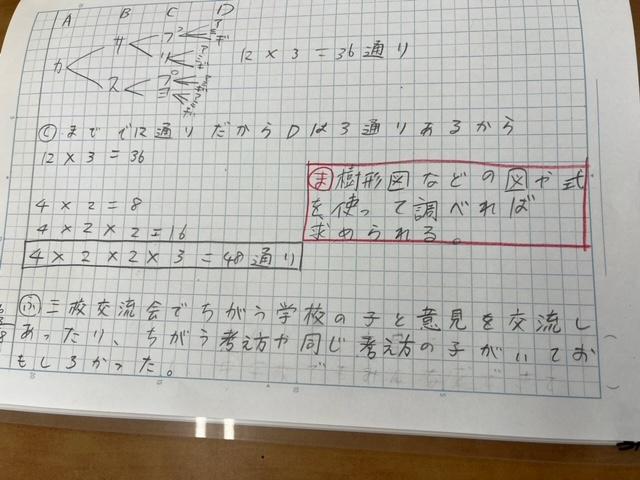 A B C D
カ サ ス プ リ プ ヨ
12×3=36通り
Ⓒまでで12通りだからDは3通りあるから
12×3=36
4×2=8
4×2×2=16
4×2×2×3=48通り
ま 樹形図などの図や式
を使って調べれば
求められる。
ふ 三校交流会でちがう学校の子と意見を交流し
あったり、ちがう考え方や同じ考え方の子がいてお
もしろかった。